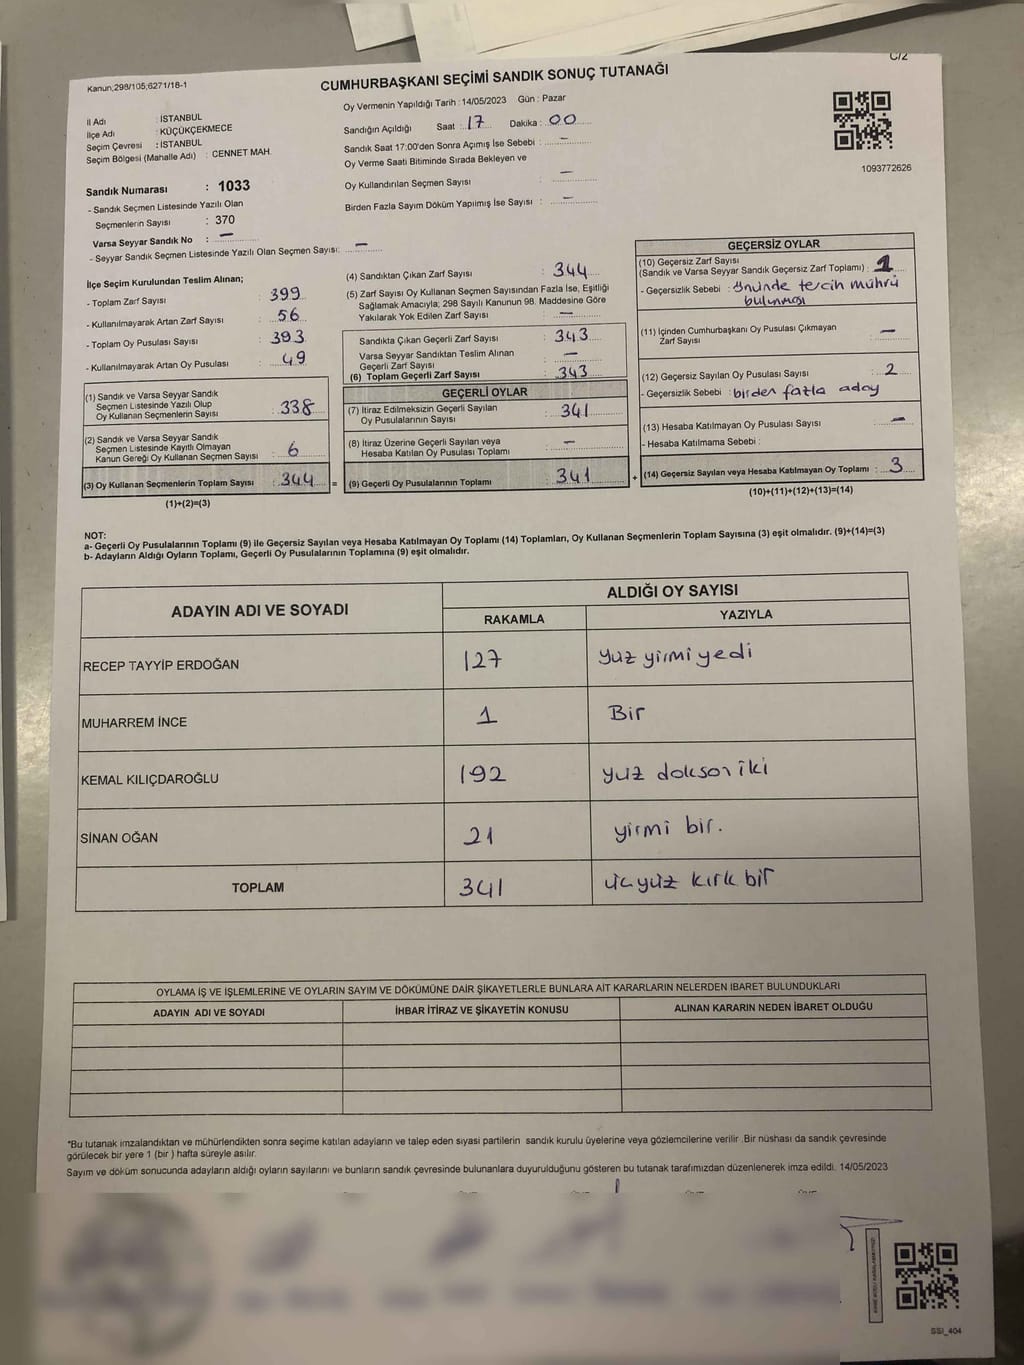 C/2
Kanun;298/105;6271/18-1
CUMHURBAŞKANI SEÇİMİ SANDIK SONUÇ TUTANAĞI
Oy Vermenin Yapıldığı Tarih : 14/05/2023 Gün : Pazar
İl Adı : İSTANBUL
İlçe Adı : KÜÇÜKÇEKMECE
Seçim Çevresi : İSTANBUL
Seçim Bölgesi (Mahalle Adı) : CENNET MAH.
Sandığın Açıldığı Saat : 17 Dakika : 00
Sandık Saat 17:00'den Sonra Açımış İse Sebebi : –
Oy Verme Saati Bitiminde Sırada Bekleyen ve
Oy Kullandırılan Seçmen Sayısı : –
Birden Fazla Sayım Döküm Yapılmış İse Sayısı : –
1093772626
Sandık Numarası : 1033
- Sandık Seçmen Listesinde Yazılı Olan
Seçmenlerin Sayısı : 370
Varsa Seyyar Sandık No : –
- Seyyar Sandık Seçmen Listesinde Yazılı Olan Seçmen Sayısı: –
İlçe Seçim Kurulundan Teslim Alınan;
- Toplam Zarf Sayısı : 399
- Kullanılmayarak Artan Zarf Sayısı : 56
- Toplam Oy Pusulası Sayısı : 393
- Kullanılmayarak Artan Oy Pusulası : 49
(1) Sandık ve Varsa Seyyar Sandık
Seçmen Listesinde Yazılı Olup
Oy Kullanan Seçmenlerin Sayısı : 338
(2) Sandık ve Varsa Seyyar Sandık
Seçmen Listesinde Kayıtlı Olmayan
Kanun Gereği Oy Kullanan Seçmen Sayısı : 6
(3) Oy Kullanan Seçmenlerin Toplam Sayısı : 344 =
(1)+(2)=(3)
(4) Sandıktan Çıkan Zarf Sayısı : 344
(5) Zarf Sayısı Oy Kullanan Seçmen Sayısından Fazla İse, Eşitliği
Sağlamak Amacıyla; 298 Sayılı Kanunun 98. Maddesine Göre
Yakılarak Yok Edilen Zarf Sayısı : –
Sandıkta Çıkan Geçerli Zarf Sayısı : 343
Varsa Seyyar Sandıktan Teslim Alınan
Geçerli Zarf Sayısı : –
(6) Toplam Geçerli Zarf Sayısı : 343
GEÇERLİ OYLAR
(7) İtiraz Edilmeksizin Geçerli Sayılan
Oy Pusulalarının Sayısı : 341
(8) İtiraz Üzerine Geçerli Sayılan veya
Hesaba Katılan Oy Pusulası Toplamı : –
(9) Geçerli Oy Pusulalarının Toplamı : 341 +
GEÇERSİZ OYLAR
(10) Geçersiz Zarf Sayısı
(Sandık ve Varsa Seyyar Sandık Geçersiz Zarf Toplamı) : 1
- Geçersizlik Sebebi : önünde tercih mührü
bulunması
(11) İçinden Cumhurbaşkanı Oy Pusulası Çıkmayan
Zarf Sayısı : –
(12) Geçersiz Sayılan Oy Pusulası Sayısı : 2
- Geçersizlik Sebebi : birden fazla aday
(13) Hesaba Katılmayan Oy Pusulası Sayısı : –
- Hesaba Katılmama Sebebi :
(14) Geçersiz Sayılan veya Hesaba Katılmayan Oy Toplamı : 3
(10)+(11)+(12)+(13)=(14)
NOT:
a- Geçerli Oy Pusulalarının Toplamı (9) ile Geçersiz Sayılan veya Hesaba Katılmayan Oy Toplamı (14) Toplamları, Oy Kullanan Seçmenlerin Toplam Sayısına (3) eşit olmalıdır. (9)+(14)=(3)
b- Adayların Aldığı Oyların Toplamı, Geçerli Oy Pusulalarının Toplamına (9) eşit olmalıdır.
ADAYIN ADI VE SOYADI ALDIĞI OY SAYISI
RAKAMLA YAZIYLA
RECEP TAYYİP ERDOĞAN 127 yüz yirmi yedi
MUHARREM İNCE 1 Bir
KEMAL KILIÇDAROĞLU 192 yüz doksan iki
SİNAN OĞAN 21 yirmi bir.
TOPLAM 341 üçyüz kırk bir
OYLAMA İŞ VE İŞLEMLERİNE VE OYLARIN SAYIM VE DÖKÜMÜNE DAİR ŞİKAYETLERLE BUNLARA AİT KARARLARIN NELERDEN İBARET BULUNDUKLARI
ADAYIN ADI VE SOYADI İHBAR İTİRAZ VE ŞİKAYETİN KONUSU ALINAN KARARIN NEDEN İBARET OLDUĞU
*Bu tutanak imzalandıktan ve mühürlendikten sonra seçime katılan adayların ve talep eden siyasi partilerin sandık kurulu üyelerine veya gözlemcilerine verilir .Bir nüshası da sandık çevresinde
görülecek bir yere 1 (bir ) hafta süreyle asılır.
Sayım ve döküm sonucunda adayların aldığı oyların sayılarını ve bunların sandık çevresinde bulunanlara duyurulduğunu gösteren bu tutanak tarafımızdan düzenlenerek imza edildi. 14/05/2023
SSI_404